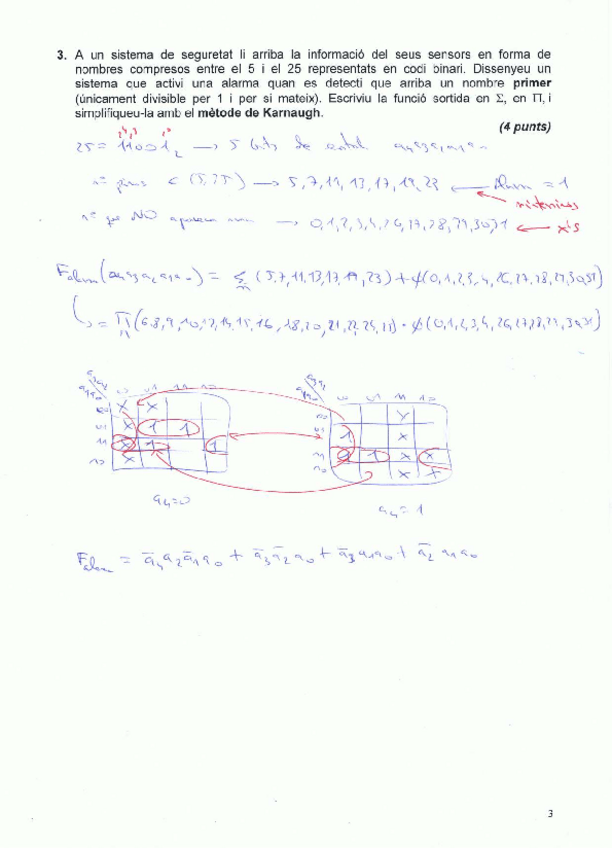 3. A un sistema de seguretat li arriba la informació del seus sensors en forma de
nombres compresos entre el 5 i el 25 representats en codi binari. Dissenyeu un
sistema que activi una alarma quan es detecti que arriba un nombre primer
(únicament divisible per 1 i per si mateix). Escriviu la funció sortida en Σ, en Π, i
simplifiqueu-la amb el mètode de Karnaugh.
(4 punts)
25 = 11001₂ → 5 bits de entrada a₄a₃a₂a₁a₀
∈ (5,25) → 5, 7, 11, 13, 17, 19, 23 ← Alarm = 1
nº que NO → 0,1,2,3,4,26,27,28,29,30,31 ← x's
F alarm (a₄a₃a₂a₁a₀) = Σ m (5,7,11,13,17,19,23) + ϕ(0,1,2,3,4,26,27,28,29,30,31)
= Π M (6,8,9,10,12,14,15,16,18,20,21,22,24,25) · ϕ(0,1,2,3,4,26,27,28,29,30,31)
a₄=0
a₄=1
F alarm = a̅₄a₂a̅₁a₀ + a̅₃a̅₂a₀ + a̅₃a₁a₀ + a̅₂a₁a₀
3